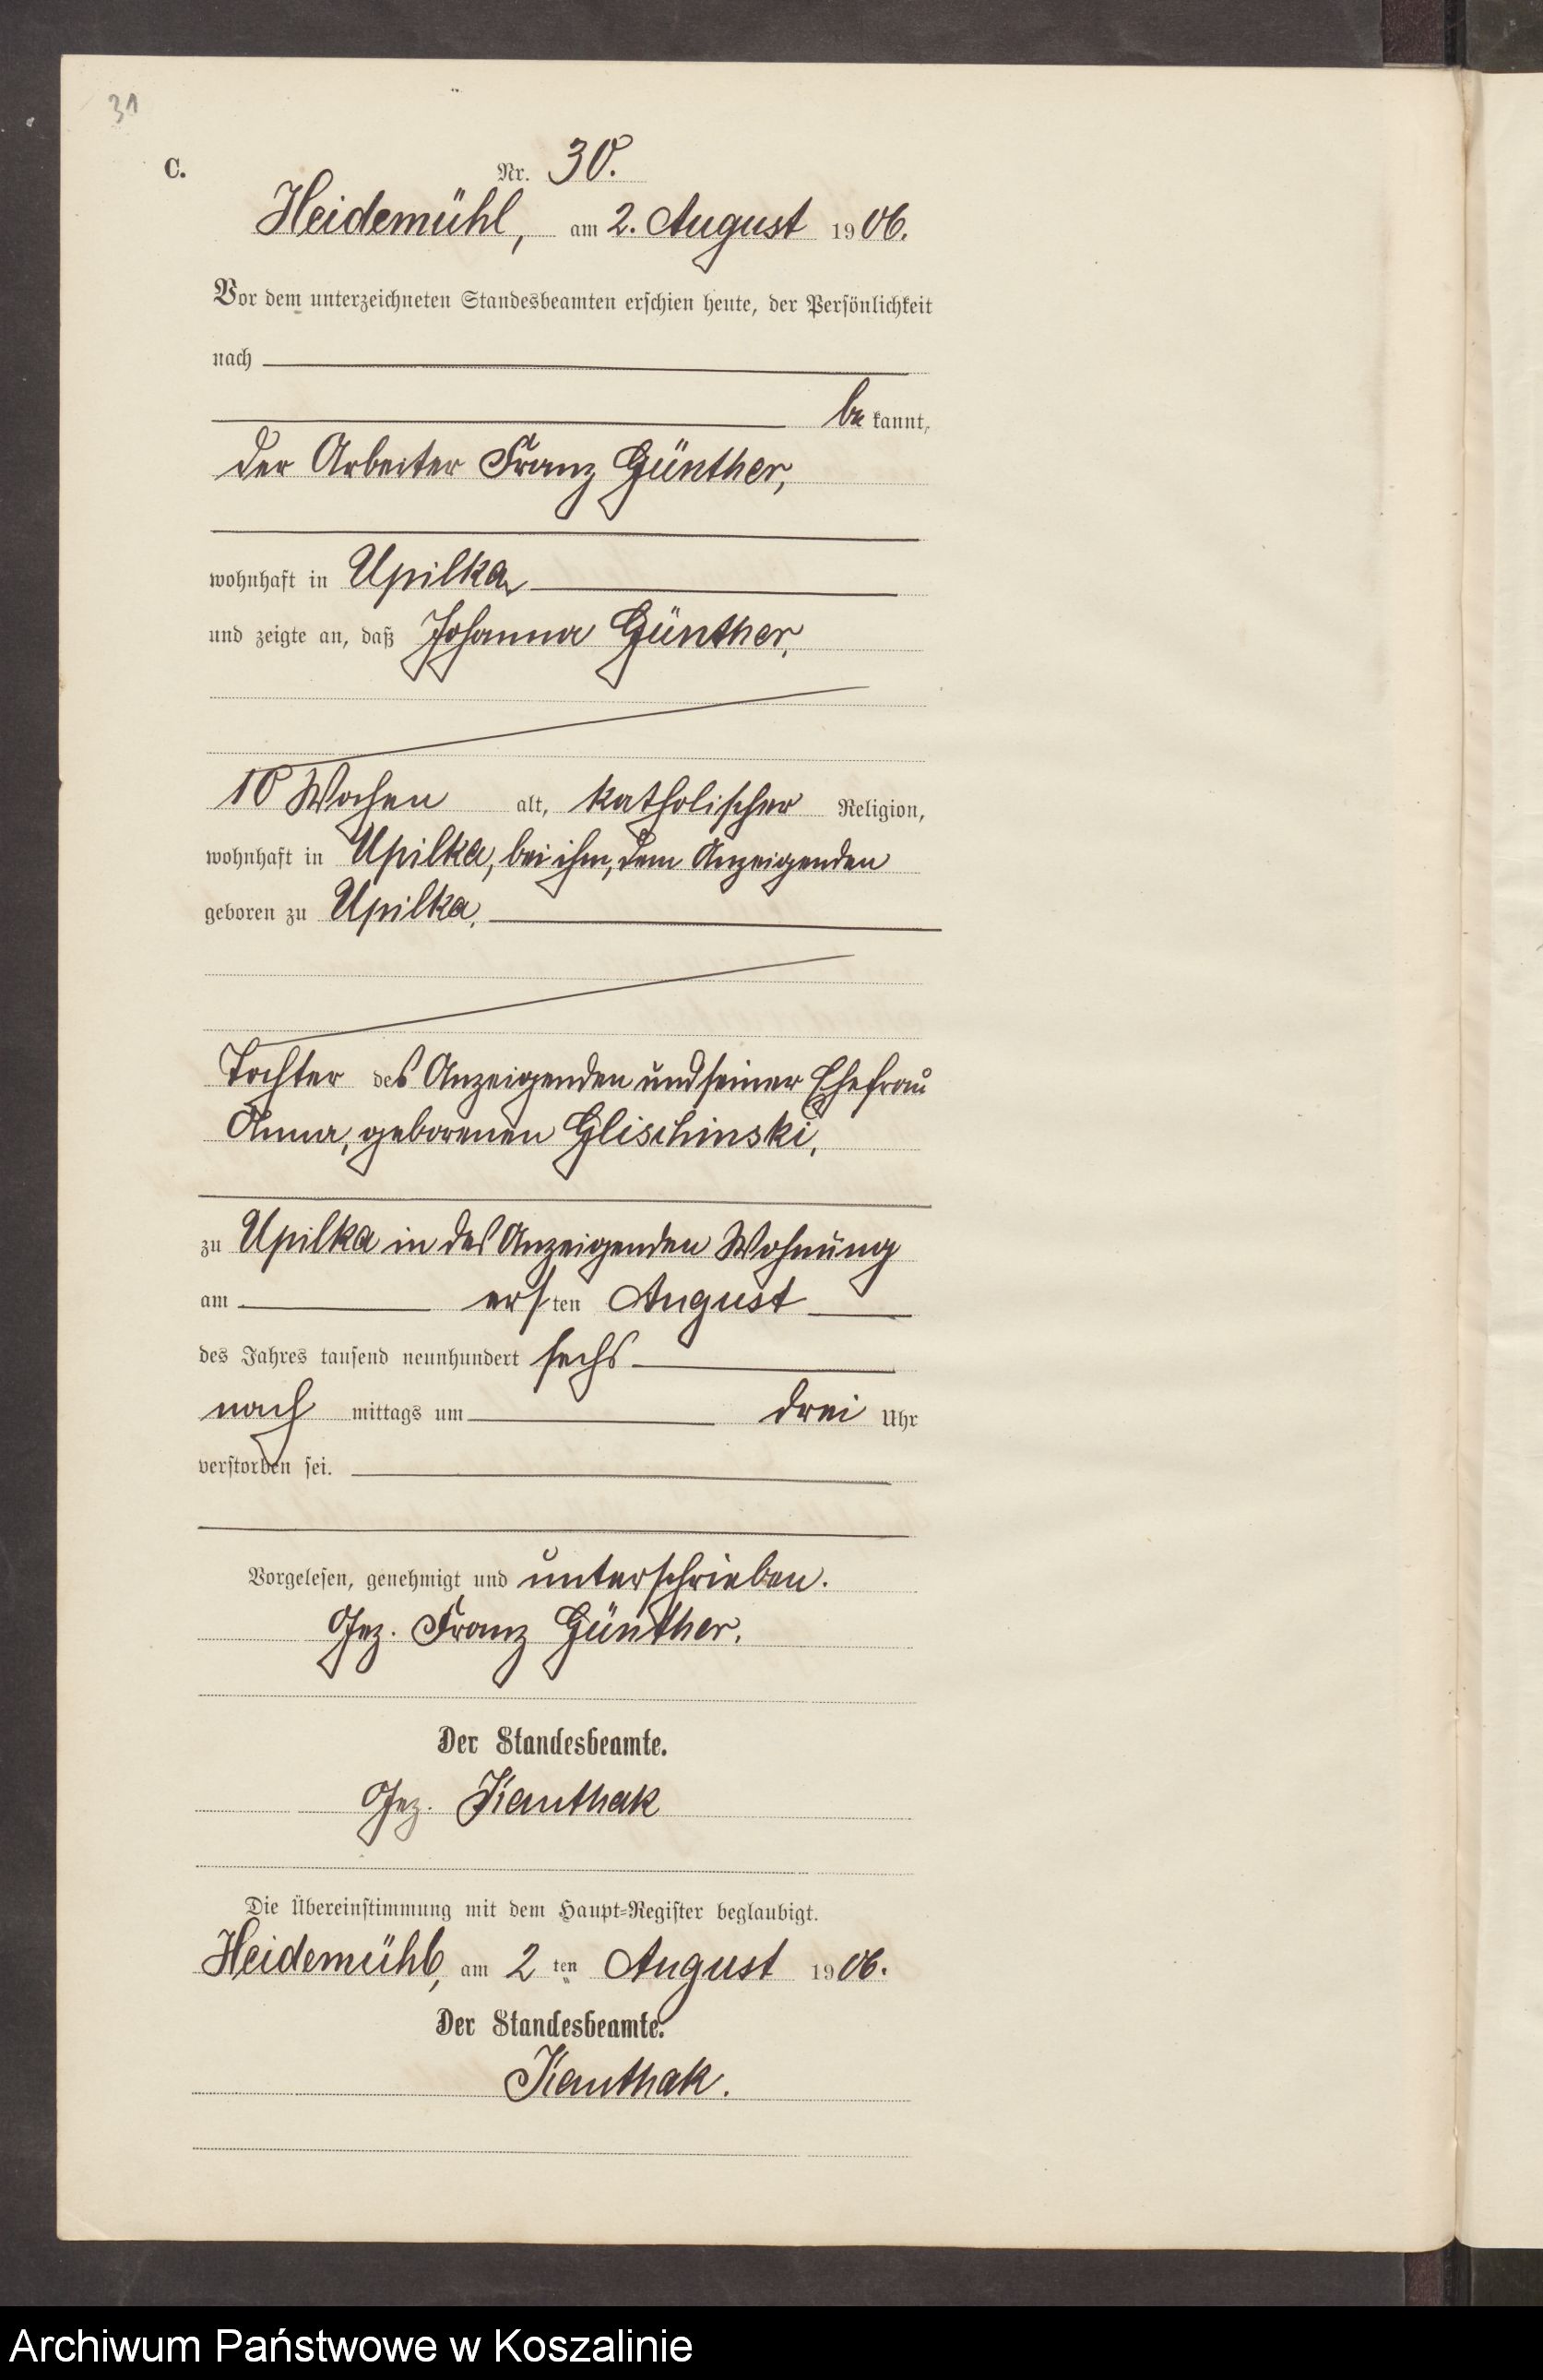 31
C.
Nr. 30.
Heidemühl, am 2. August 1906.
Vor dem unterzeichneten Standesbeamten erschien heute, der Persönlichkeit
nach
be kannt,
der Arbeiter Franz Günther,
wohnhaft in Upilka
und zeigte an, daß Johanna Günther,
10 Wochen alt, katholischer Religion,
wohnhaft in Upilka, bei ihm, dem Anzeigenden
geboren zu Upilka,
Tochter des Anzeigenden und seiner Ehefrau
Anna, geborenen Glischinski,
zu Upilka in des Anzeigenden Wohnung
am ersten August
des Jahres tausend neunhundert sechs
nach mittags um drei Uhr
verstorben sei.
Vorgelesen, genehmigt und unterschrieben.
Gez. Franz Günther.
Der Standesbeamte.
Gez. Kanthak
Die Übereinstimmung mit dem Haupt-Register beglaubigt.
Heidemühl, am 2 ten August 1906.
Der Standesbeamte.
Kanthak.
Archiwum Państwowe w Koszalinie